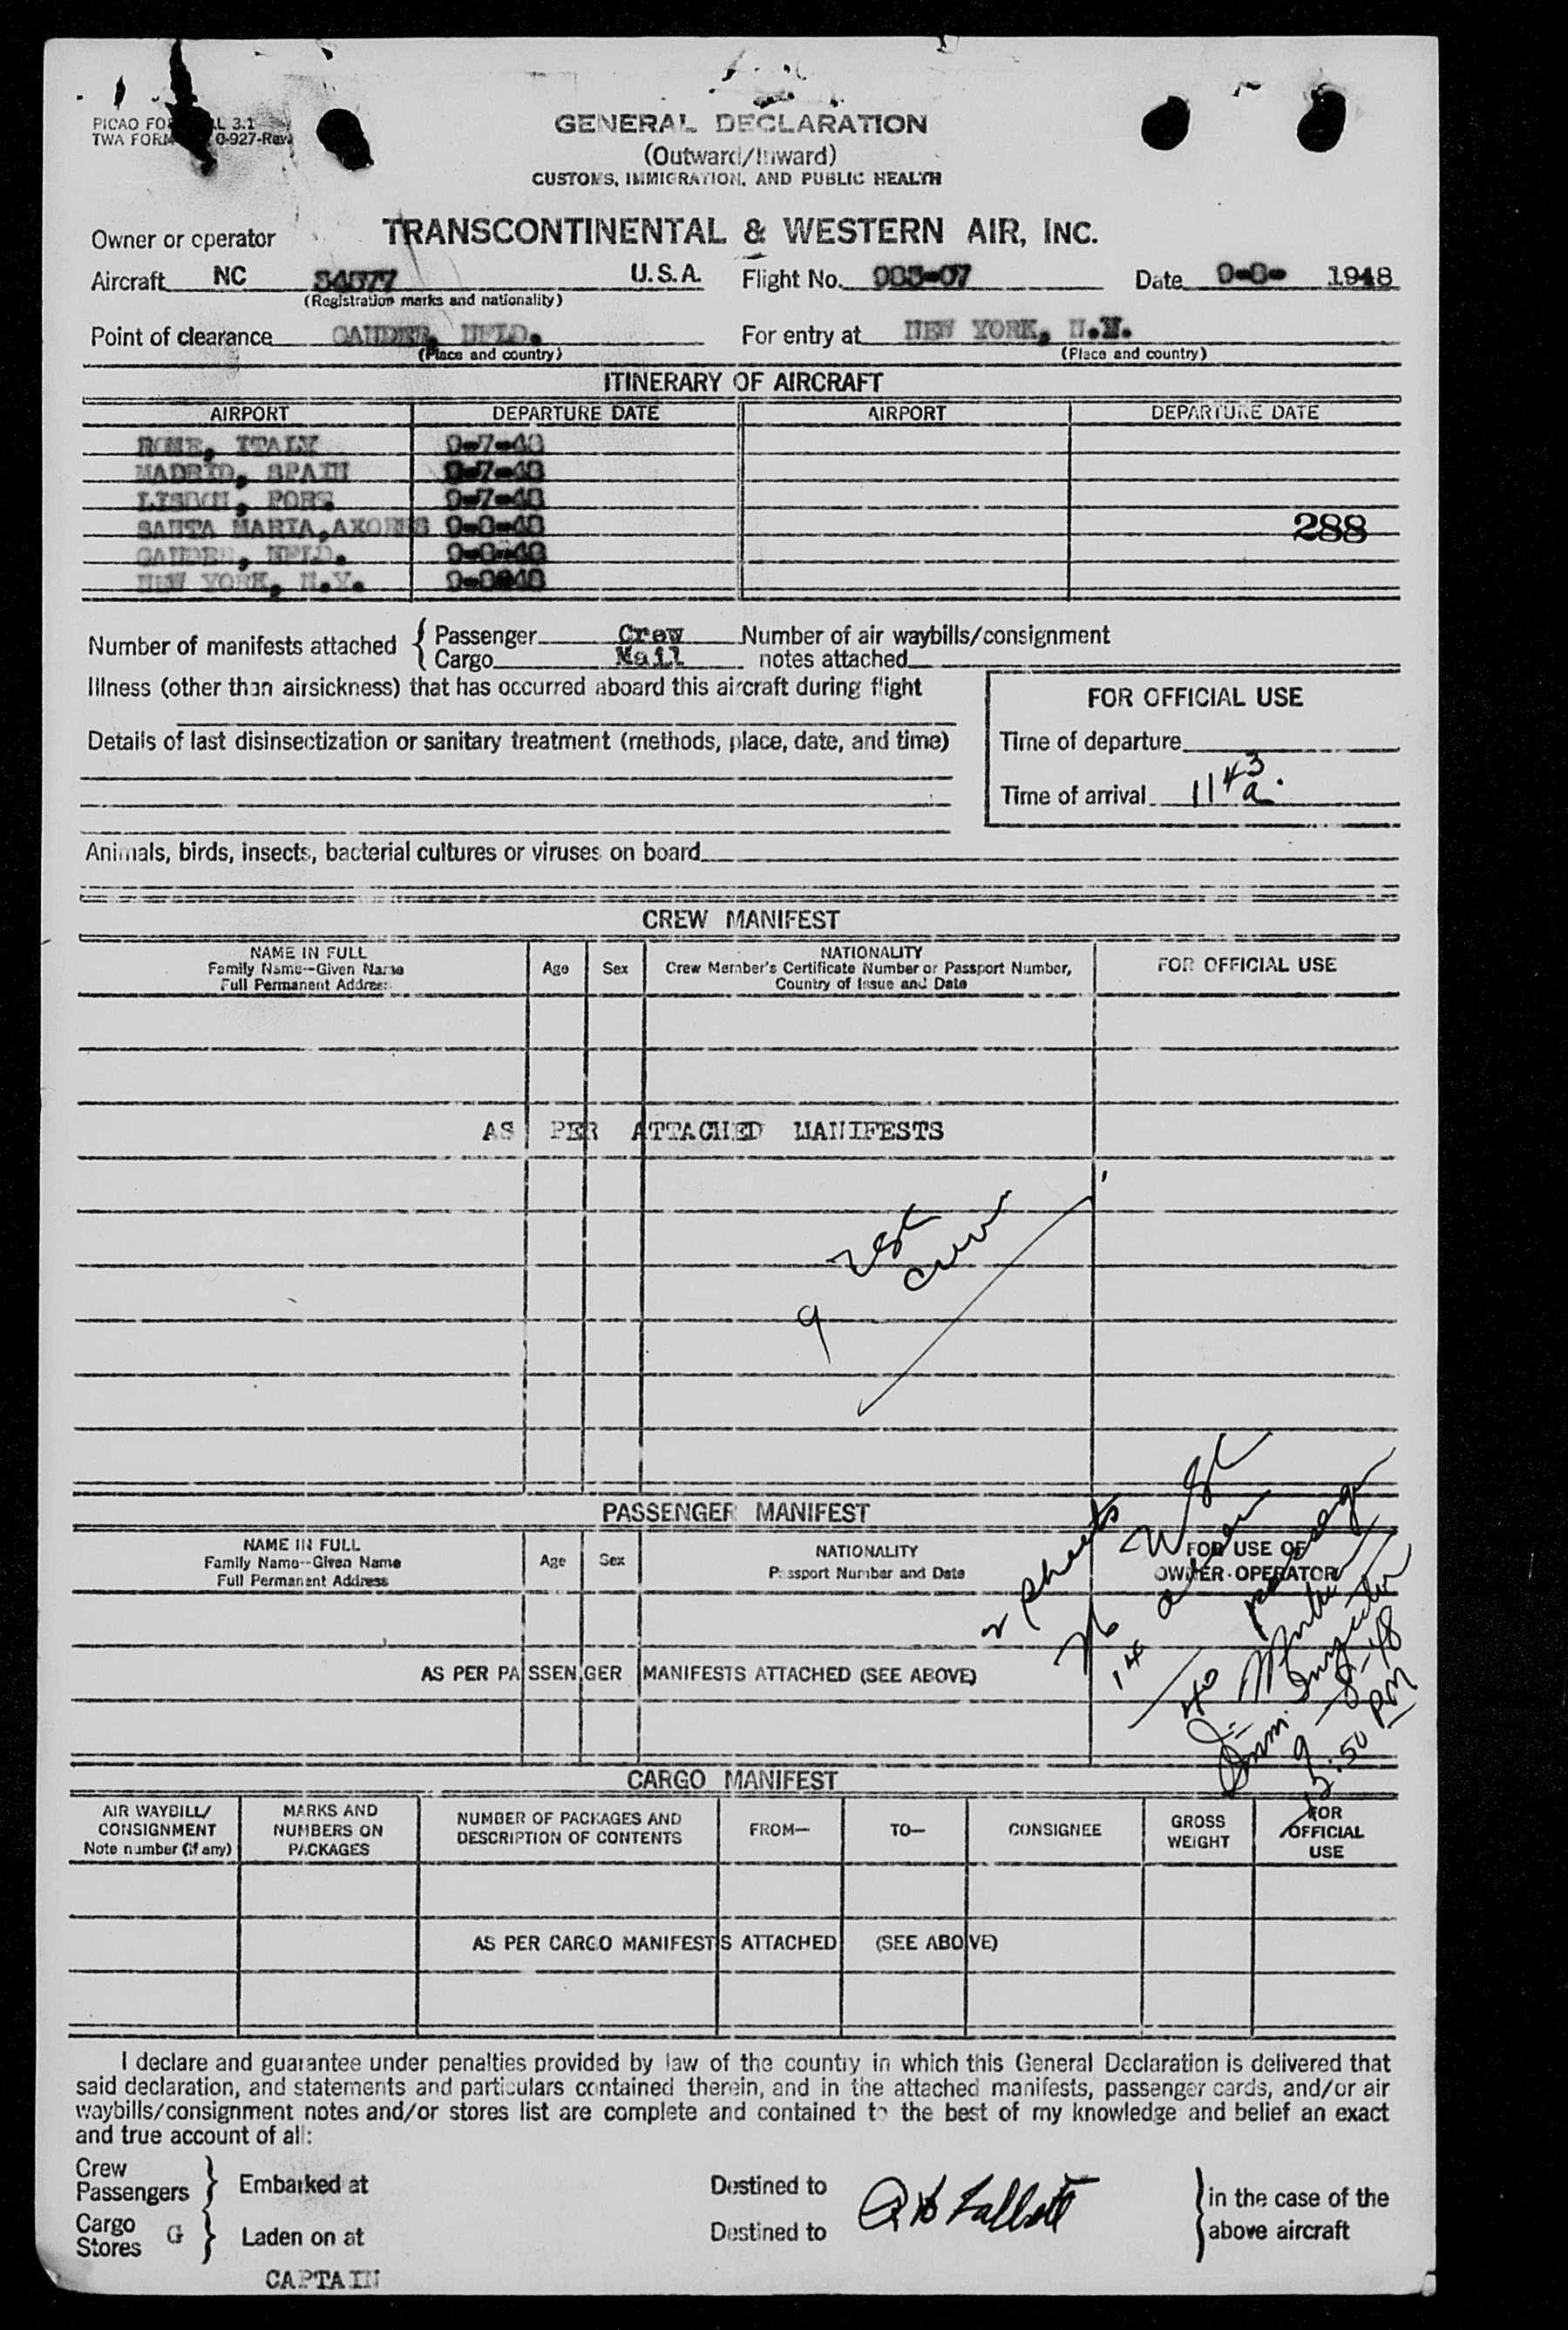 PICAO FO L 3.1
TWA FORM 0-927-Rev.
GENERAL DECLARATION
(Outward/Inward)
CUSTOMS, IMMIGRATION, AND PUBLIC HEALTH
Owner or operator TRANSCONTINENTAL & WESTERN AIR, INC.
Aircraft NC 34577 U.S.A. Flight No. 985-07 Date 9-8- 1948
(Registration marks and nationality)
Point of clearance GANDER, NFLD. For entry at NEW YORK, N.Y.
(Place and country) (Place and country)
ITINERARY OF AIRCRAFT
AIRPORT DEPARTURE DATE AIRPORT DEPARTURE DATE
ROME, ITALY 9-7-48
MADRID, SPAIN 9-7-48
LISBON, PORT. 9-7-48
SANTA MARIA,AXORES 9-8-48 288
GANDER, NFLD. 9-8-48
NEW YORK, N.Y. 9-8-48
Number of manifests attached { Passenger Crew Number of air waybills/consignment
Cargo Mail notes attached
Illness (other than airsickness) that has occurred aboard this aircraft during flight
FOR OFFICIAL USE
Details of last disinsectization or sanitary treatment (methods, place, date, and time)
Time of departure
Time of arrival 11 43 a.
Animals, birds, insects, bacterial cultures or viruses on board
CREW MANIFEST
NAME IN FULL
Family Name--Given Name
Full Permanent Address
Age Sex
NATIONALITY
Crew Member's Certificate Number or Passport Number,
Country of Issue and Date
FOR OFFICIAL USE
AS PER ATTACHED MANIFESTS
9 crew
PASSENGER MANIFEST
NAME IN FULL
Family Name--Given Name
Full Permanent Address
Age Sex
NATIONALITY
Passport Number and Date
FOR USE OF
OWNER-OPERATOR
2 sheets
26
14 alien
40 passenger
Imm. Inspector
9-8-48
12:50 PM
AS PER PASSENGER MANIFESTS ATTACHED (SEE ABOVE)
CARGO MANIFEST
AIR WAYBILL/
CONSIGNMENT
Note number (if any)
MARKS AND
NUMBERS ON
PACKAGES
NUMBER OF PACKAGES AND
DESCRIPTION OF CONTENTS
FROM—
TO—
CONSIGNEE
GROSS
WEIGHT
FOR
OFFICIAL
USE
AS PER CARGO MANIFESTS ATTACHED (SEE ABOVE)
I declare and guarantee under penalties provided by law of the country in which this General Declaration is delivered that
said declaration, and statements and particulars contained therein, and in the attached manifests, passenger cards, and/or air
waybills/consignment notes and/or stores list are complete and contained to the best of my knowledge and belief an exact
and true account of all:
Crew
Passengers } Embarked at Destined to
Cargo
Stores G } Laden on at Destined to
} in the case of the
above aircraft
CAPTAIN